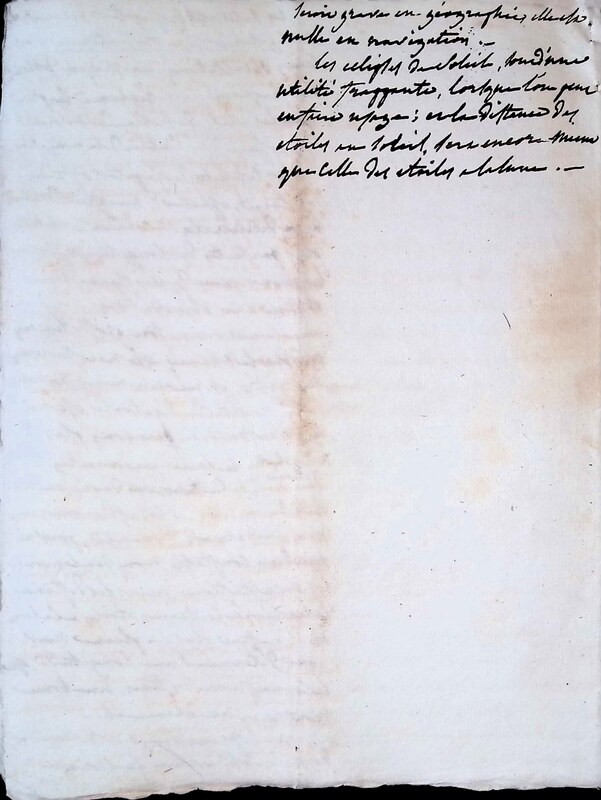 seroit grave en géographie, elle est
nulle en navigation. —
Les eclipses de Soleil, sont d'une
utilité frappante, lorsque l'on peut
en faire usage; et la distance des
etoiles au Soleil, sera encore mieux
que celles des etoiles a la lune. —